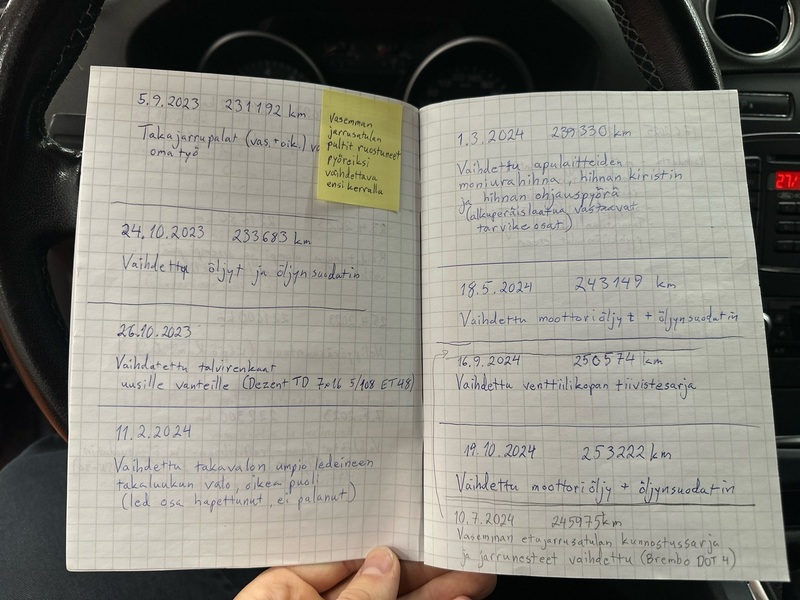 5.9.2023 231192 km
Takajarrupalat (vas.+oik.)
oma työ
Vasemman
jarrusatulan
pultit ruostuneet
pyöreiksi
vaihdettava
ensi kerralla
24.10.2023 233683 km
Vaihdettu öljyt ja öljynsuodatin
26.10.2023
Vaihdatettu talvirenkaat
uusille vanteille (Dezent TD 7x16 5/108 ET48)
11.2.2024
Vaihdettu takavalon umpio ledeineen
takaluukun valo, oikea puoli
(led osa hapettunut, ei palanut)
1.3.2024 239330 km
Vaihdettu apulaitteiden
moniurahihna, hihnan kiristin
ja hihnan ohjauspyörä
(alkuperäislaatua vastaavat
tarvikeosat.)
18.5.2024 243149 km
Vaihdettu moottoriöljyt + öljynsuodatin
16.9.2024 250574 km
Vaihdettu venttiilikopan tiivistesarja
19.10.2024 253222 km
Vaihdettu moottoriöljy + öljynsuodatin
10.7.2024 245975km
Vasemman etujarrusatulan kunnostussarja
ja jarrunesteet vaihdettu (Brembo DOT 4)